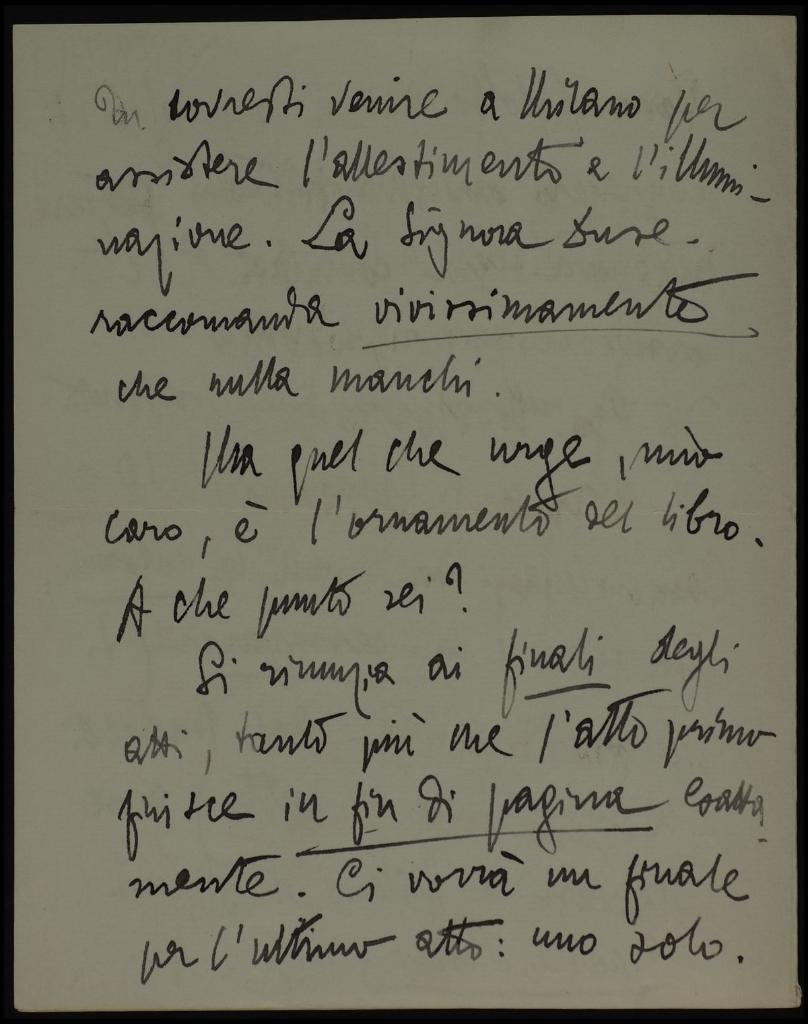 Tu dovresti venire a Milano per
assistere l'allestimento e l'illumi-
nazione. La Signora Duse
raccomanda vivissimamente
che nulla manchi.
Ma quel che urge, mio
caro, è l'ornamento del libro.
A che punto sei?
Si rinunzia ai finali degli
atti, tanto più che l'atto primo
finisce in fin di pagina esatta-
mente. Ci vorrà un finale
per l'ultimo atto: uno solo.